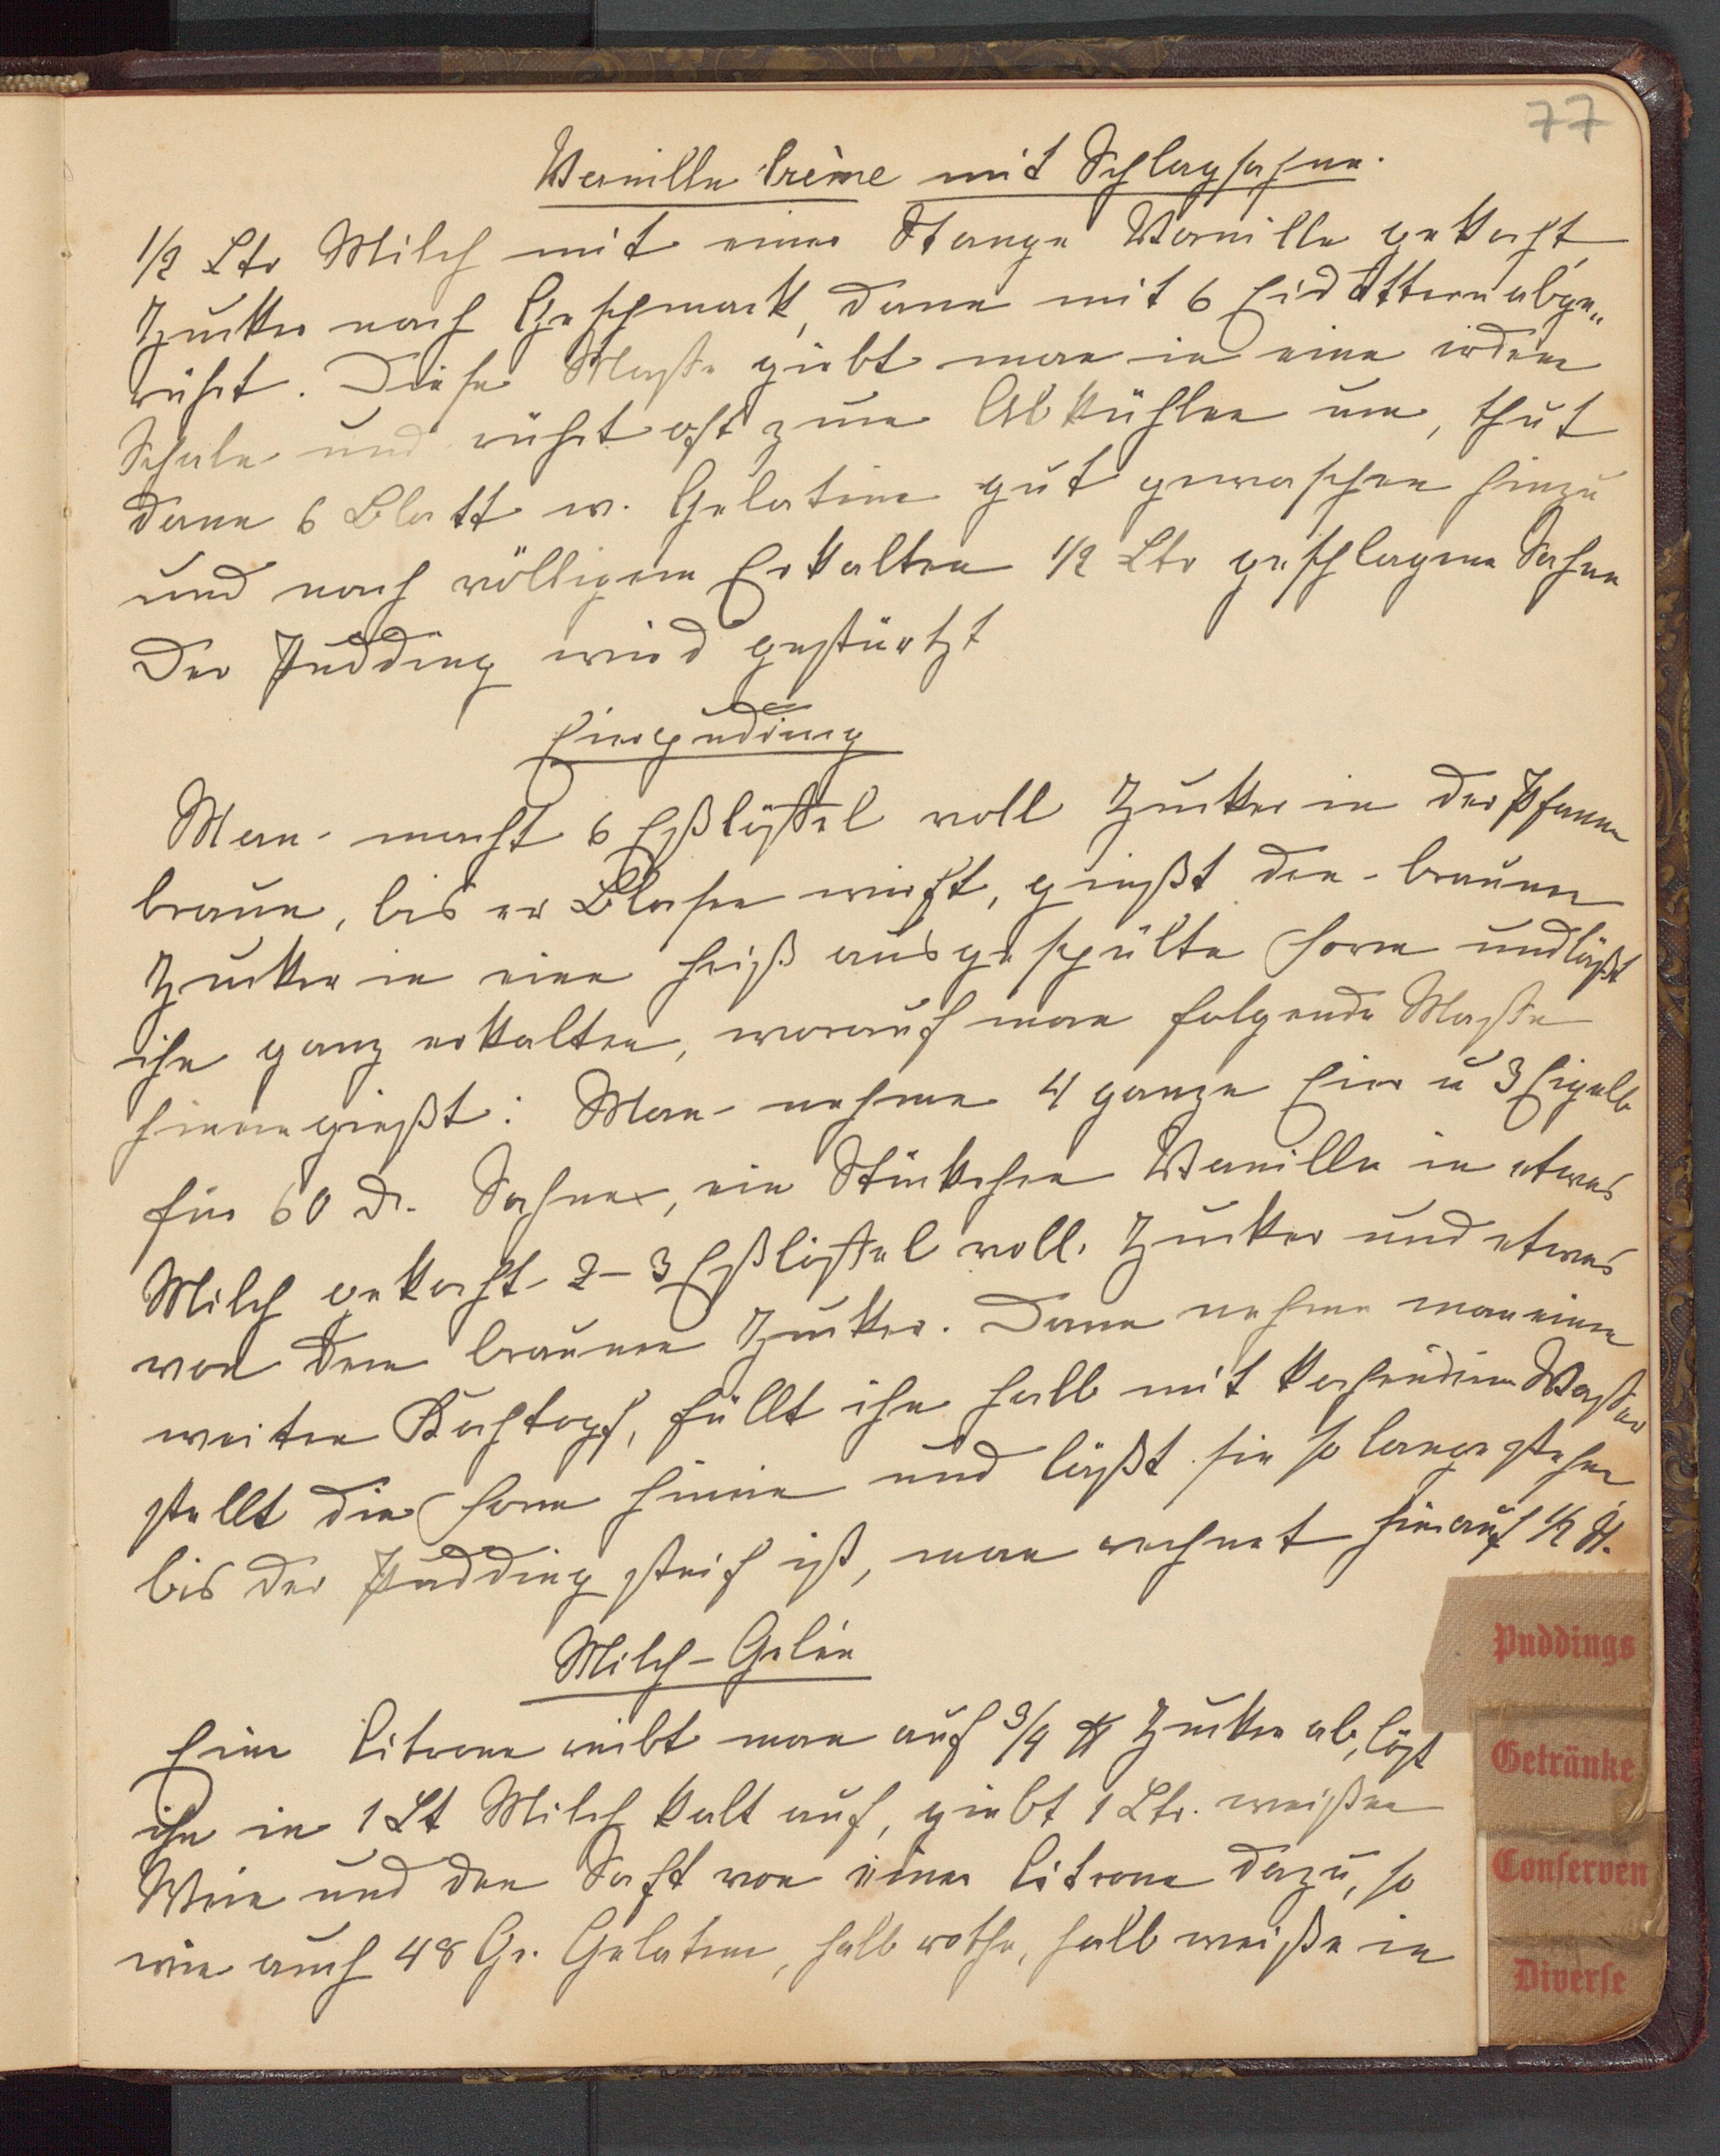 77
Vanille Crème mit Schlagsahne.
1/2 Ltr Milch mit einer Stange Vanille gekocht,
Zucker nach Geschmack, dann mit 6 Eidottern abge„
rührt. Diese Masse giebt man in eine irdene
Schale und rührt oft zum Abkühlen um, thut
dann 6 Blatt w. Gelatine gut gewaschen hinzu
und nach völligem Erkalten 1/2 Ltr geschlagene Sahne
Der Pudding wird gestürtzt
Eierpudding
Man macht 6 Eßlöffel voll Zucker in der Pfanne
braun, bis er Blasen wirft, gießt den braunen
Zucker in eine heiß ausgespülte Form und läßt
ihn ganz erkalten, worauf man folgende Masse
hineingießt: Man nehme 4 ganze Eier u 3 Eigelb
für 60 Sahne, ein Stückchen Vanille in etwas
Milch gekocht 2-3 Eßlöffel voll Zucker und etwas
von dem braunen Zucker. Dann nehme man einen
weiten Kochtopf, füllt ihn halb mit kochendem Wasser
stellt die Form hinein und läßt sie so lange stehen,
bis der Pudding steif ist, man rechnet hierauf 1/2 St.
Milch-Gelée
Eine Citrone reibt man auf 3/4 ℔ Zucker ab, löst
ihn in 1 Lt Milch kalt auf, giebt 1 Ltr. weißen
Wein und den Saft von einer Citrone dazu, so
wie auch 48 Gr. Gelatine, halb rothe, halb weiße in
Puddings
Getränke
Conserven
Diverse